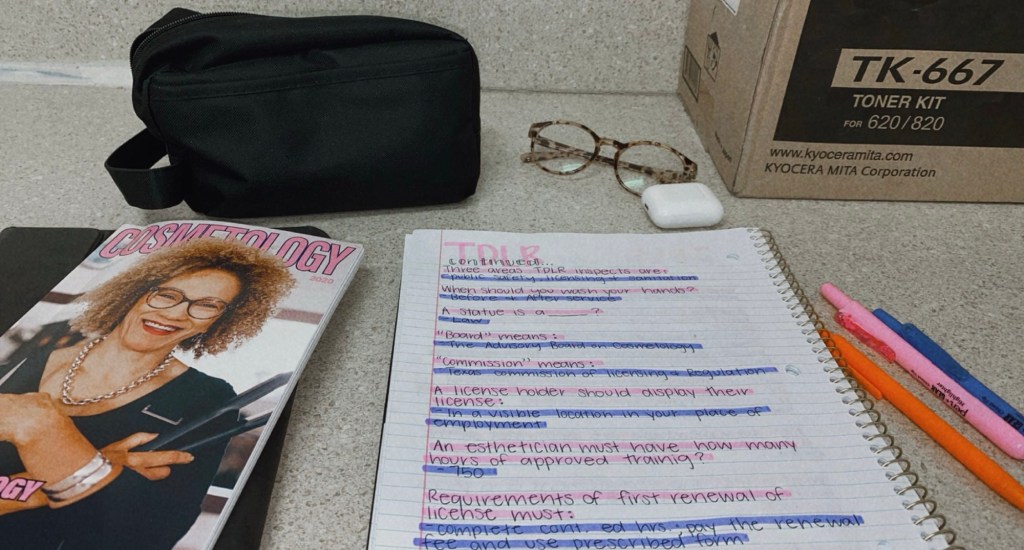 TK-667
TONER KIT
FOR 620/820
www.kyoceramita.com
KYOCERA MITA Corporation
COSMETOLOGY
2020
OGY
TDLR
continued...
Three areas TDLR inspects are:
- public safety, licensing + sanitation
When should you wash your hands?
- Before + After service
A statue is a ____?
- Law
"Board" means:
- The Advisory Board on Cosmetology
"Commission" means:
- Texas commission of licensing + Regulation
A license holder should display their
license:
- In a visible location in your place of
employment
An esthetician must have how many
hours of approved trainig?
- 750
Requirements of first renewal of
license must:
- complete cont. ed hrs; pay the renewal
fee and use prescribed form